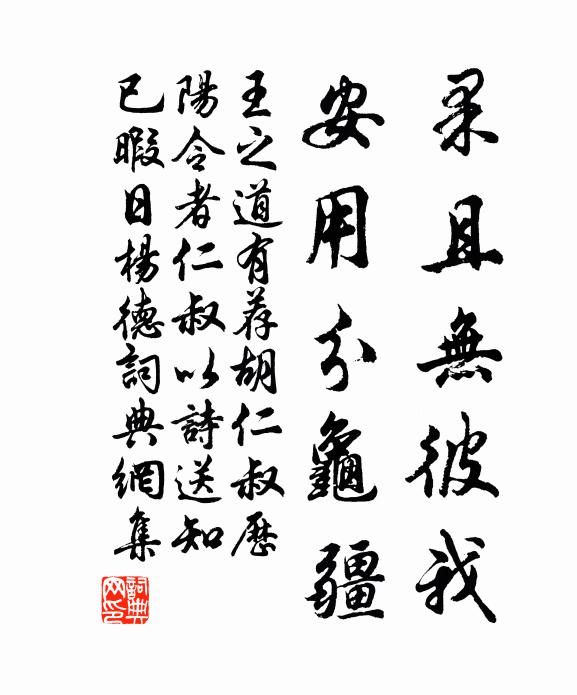 果且無彼我
安用分龜疆
王之道有荐胡仁叔歷
陽令者仁叔以詩送知
已暇日楊德詞典網集
詞典网印